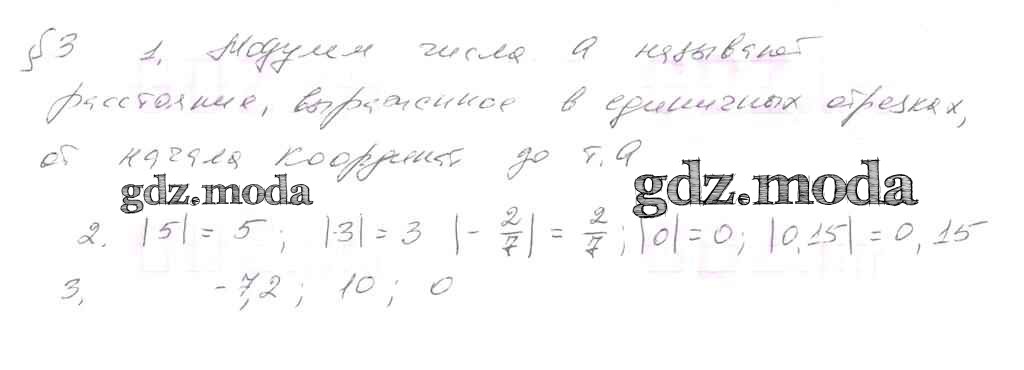 §3 1. Модулем числа а называют
расстояние, выраженное в единичных отрезках,
от начала координат до т. а
gdz.moda gdz.moda
2. |5| = 5; |-3| = 3 |- 2/7| = 2/7; |0| = 0; |0,15| = 0,15
3, -7,2; 10; 0